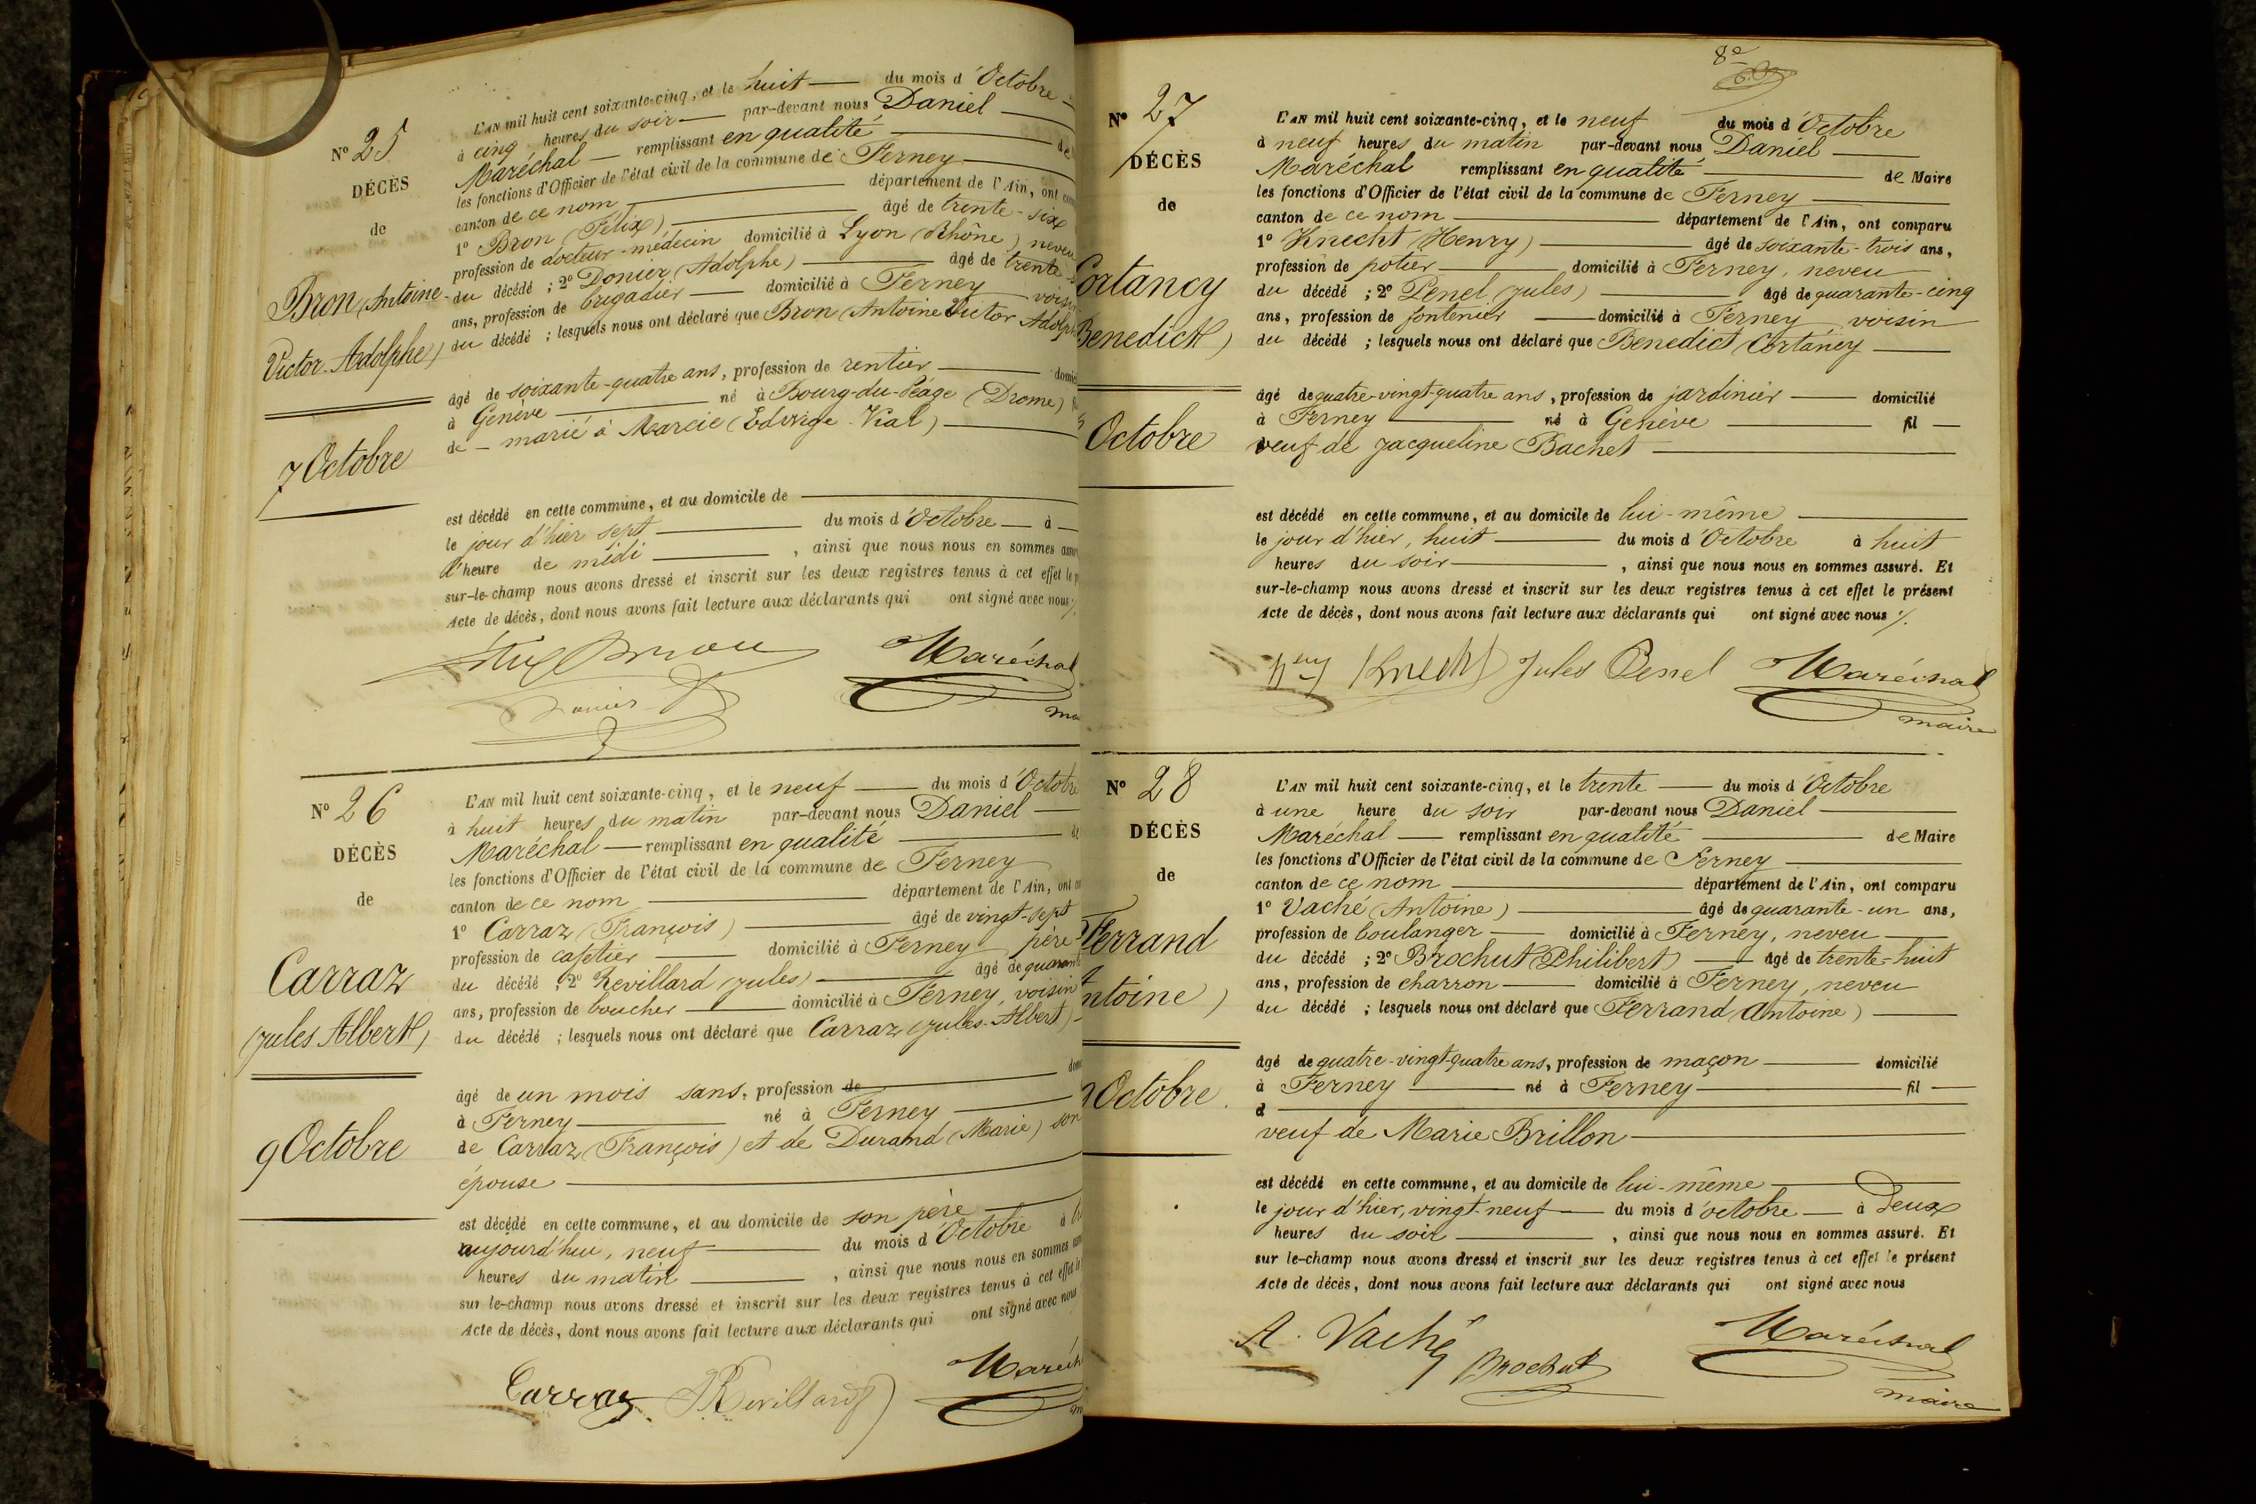 N° 25
DÉCÈS
de
Bron (Antoine-
Victor-Adolphe)
7 Octobre
L'AN mil huit cent soixante-cinq, et le huit du mois d'Octobre
à cinq heures du soir par-devant nous Daniel
Maréchal remplissant en qualité de
les fonctions d'Officier de l'état civil de la commune de Ferney
canton de ce nom département de l'Ain, ont
1° Bron (Félix) âgé de trente-six
profession de docteur-médecin domicilié à Lyon (Rhône) neveu
du décédé ; 2° Donier (Adolphe) âgé de trente
ans, profession de brigadier domicilié à Ferney voisin
du décédé ; lesquels nous ont déclaré que Bron (Antoine Victor Adolphe
âgé de soixante-quatre ans, profession de rentier
à Genève né à Bourg-du-Péage (Drome)
de marié à Marcie (Edwige Vial)
est décédé en cette commune, et au domicile de
le jour d'hier sept du mois d'Octobre à
d'heure de midi , ainsi que nous nous en sommes
sur-le-champ nous avons dressé et inscrit sur les deux registres tenus à cet effet le
Acte de décès, dont nous avons fait lecture aux déclarants qui ont signé avec nous
Maréchal
N° 26
DÉCÈS
de
Carraz
(Jules Albert)
9 Octobre
L'AN mil huit cent soixante-cinq, et le neuf du mois d'Octobre
à huit heures du matin par-devant nous Daniel
Maréchal remplissant en qualité de
les fonctions d'Officier de l'état civil de la commune de Ferney
canton de ce nom département de l'Ain, ont
1° Carraz (François) âgé de vingt-sept
profession de cafetier domicilié à Ferney père
du décédé ; 2° Revillard (Jules) âgé de quarante
ans, profession de boucher domicilié à Ferney, voisin
du décédé ; lesquels nous ont déclaré que Carraz (Jules-Albert)
âgé de un mois sans, profession de
à Ferney né à Ferney
de Carraz (François) et de Durand (Marie) son
épouse
est décédé en cette commune, et au domicile de son père
aujourd'hui, neuf du mois d'Octobre à
heures du matin , ainsi que nous nous en sommes
sur le-champ nous avons dressé et inscrit sur les deux registres tenus à cet effet
Acte de décès, dont nous avons fait lecture aux déclarants qui ont signé avec nous
Carraz J Revillard
8e
N° 27
DÉCÈS
de
Cortancy
Benedict)
Octobre
L'AN mil huit cent soixante-cinq, et le neuf du mois d'Octobre
à neuf heures du matin par-devant nous Daniel
Maréchal remplissant en qualité de Maire
les fonctions d'Officier de l'état civil de la commune de Ferney
canton de ce nom département de l'Ain, ont comparu
1° Knecht (Henry) âgé de soixante-trois ans,
profession de potier domicilié à Ferney, neveu
du décédé ; 2° Penel (Jules) âgé de quarante-cinq
ans, profession de fontenier domicilié à Ferney voisin
du décédé ; lesquels nous ont déclaré que Benedict Cortancy
âgé de quatre-vingt-quatre ans, profession de jardinier domicilié
à Ferney né à Genève fil
veuf de Jacqueline Bachet
est décédé en cette commune, et au domicile de lui-même
le jour d'hier, huit du mois d'Octobre à huit
heures du soir , ainsi que nous nous en sommes assuré. Et
sur-le-champ nous avons dressé et inscrit sur les deux registres tenus à cet effet le présent
Acte de décès, dont nous avons fait lecture aux déclarants qui ont signé avec nous ./.
Hry Knecht Jules Penel Maréchal
maire
N° 28
DÉCÈS
de
Ferrand
Antoine)
Octobre
L'AN mil huit cent soixante-cinq, et le trente du mois d'Octobre
à une heure du soir par-devant nous Daniel
Maréchal remplissant en qualité de Maire
les fonctions d'Officier de l'état civil de la commune de Ferney
canton de ce nom département de l'Ain, ont comparu
1° Vaché (Antoine) âgé de quarante-un ans,
profession de boulanger domicilié à Ferney, neveu
du décédé ; 2° Brochut (Philibert) âgé de trente-huit
ans, profession de charron domicilié à Ferney, neveu
du décédé ; lesquels nous ont déclaré que (Ferrand Antoine)
âgé de quatre-vingt-quatre ans, profession de maçon domicilié
à Ferney né à Ferney fil
d
veuf de Marie Brillon
est décédé en cette commune, et au domicile de lui-même
le jour d'hier, vingt-neuf du mois d'octobre à Deux
heures du soir , ainsi que nous nous en sommes assuré. Et
sur le-champ nous avons dressé et inscrit sur les deux registres tenus à cet effet le présent
Acte de décès, dont nous avons fait lecture aux déclarants qui ont signé avec nous
A. Vaché Brochut Maréchal
maire